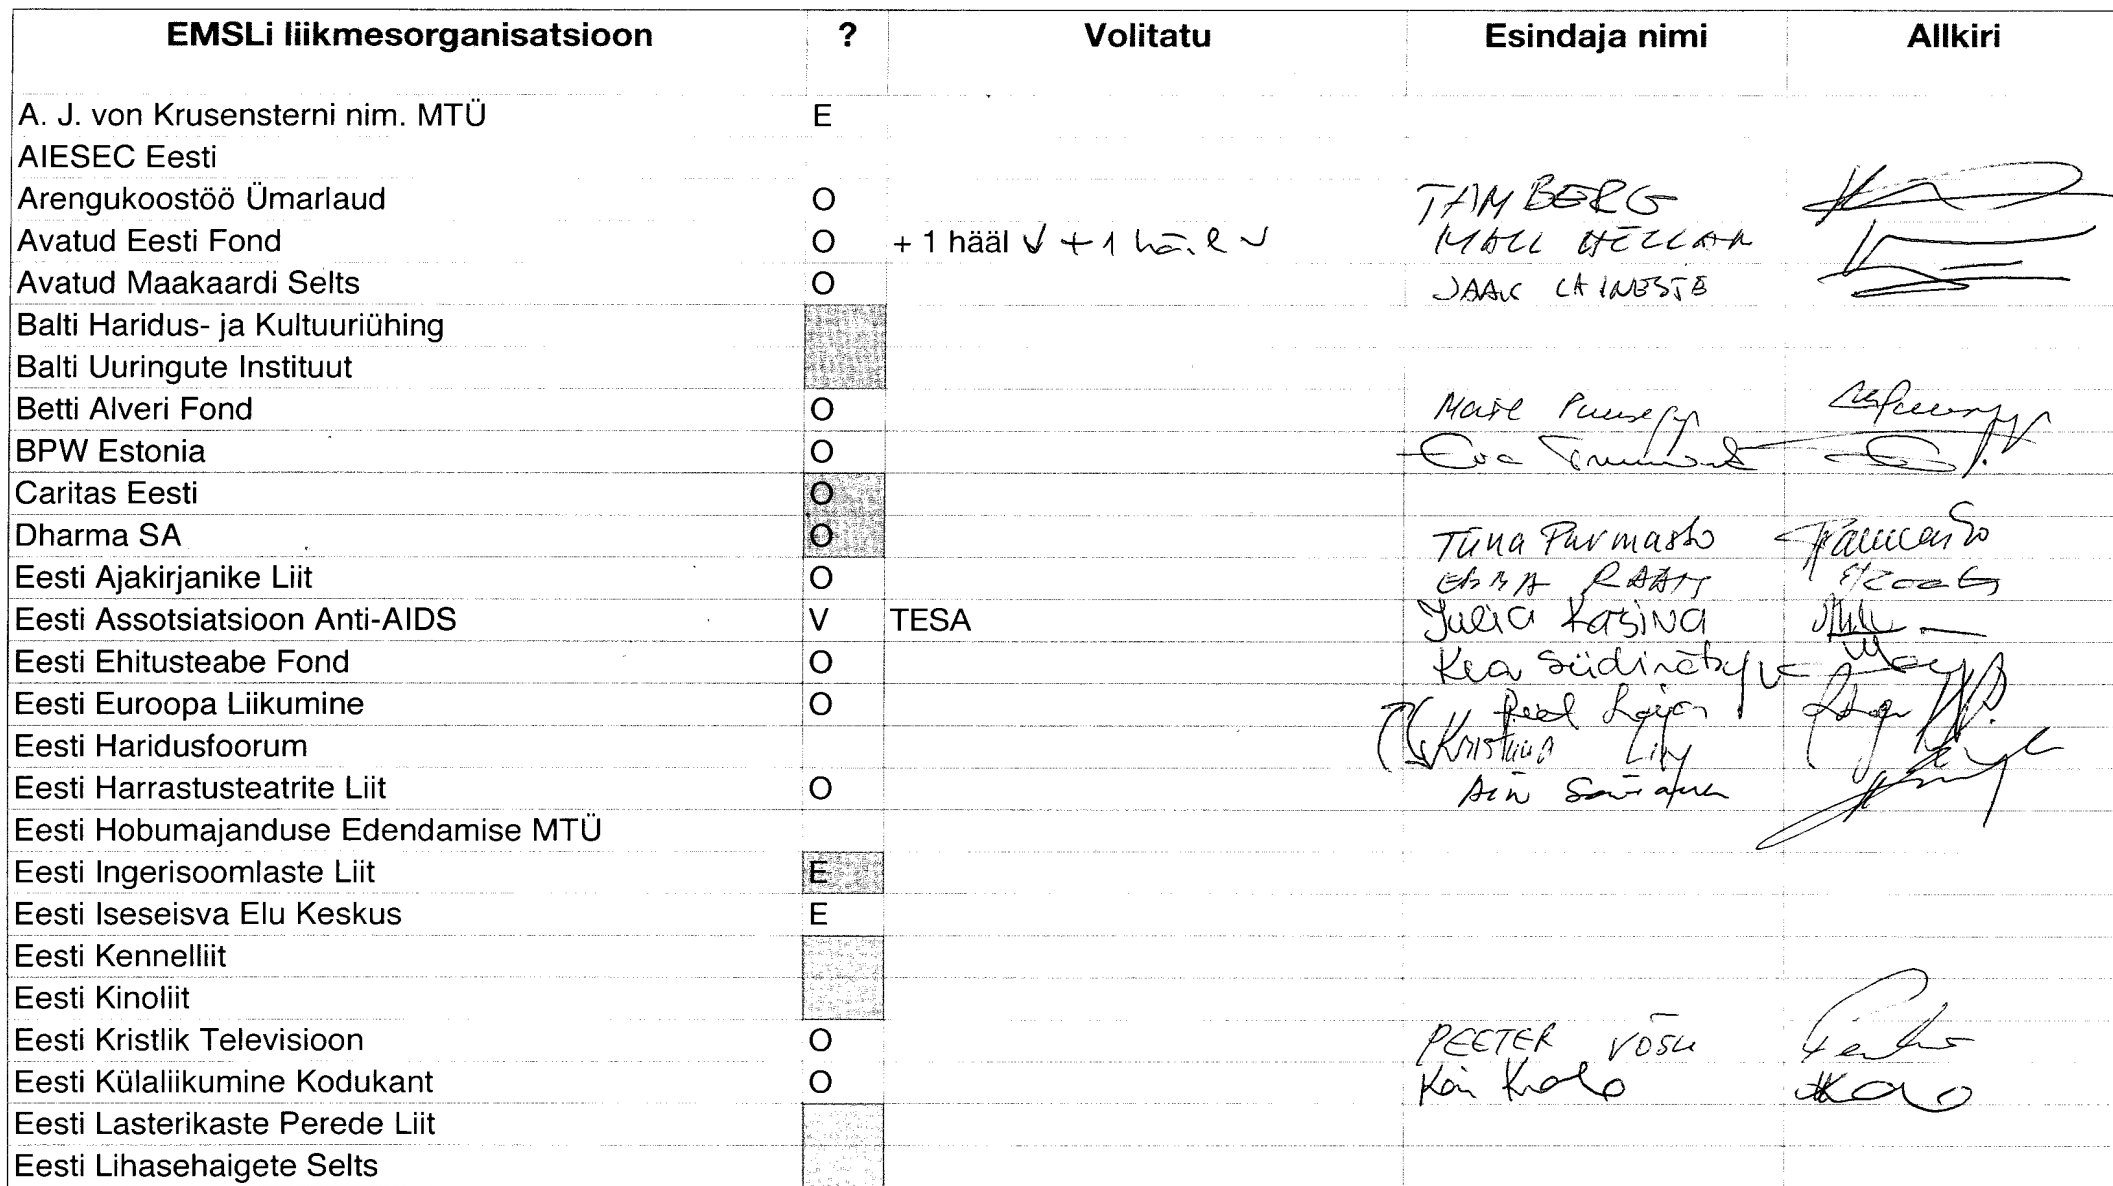 EMSLi liikmesorganisatsioon ? Volitatu Esindaja nimi Allkiri
A. J. von Krusensterni nim. MTÜ E
AIESEC Eesti
Arengukoostöö Ümarlaud O TAMBERG
Avatud Eesti Fond O + 1 hääl √ + 1 hääl √ MALL HELLAM
Avatud Maakaardi Selts O JAAK LAINESTE
Balti Haridus- ja Kultuuriühing
Balti Uuringute Instituut
Betti Alveri Fond O Puusepp
BPW Estonia O Eva
Caritas Eesti O
Dharma SA O Tiina Parmasto
Eesti Ajakirjanike Liit O
Eesti Assotsiatsioon Anti-AIDS V TESA Julia Kazina
Eesti Ehitusteabe Fond O Kea
Eesti Euroopa Liikumine O
Eesti Haridusfoorum Kristiina
Eesti Harrastusteatrite Liit O Ain
Eesti Hobumajanduse Edendamise MTÜ
Eesti Ingerisoomlaste Liit E
Eesti Iseseisva Elu Keskus E
Eesti Kennelliit
Eesti Kinoliit
Eesti Kristlik Televisioon O PEETER VÕSU
Eesti Külaliikumine Kodukant O
Eesti Lasterikaste Perede Liit
Eesti Lihasehaigete Selts